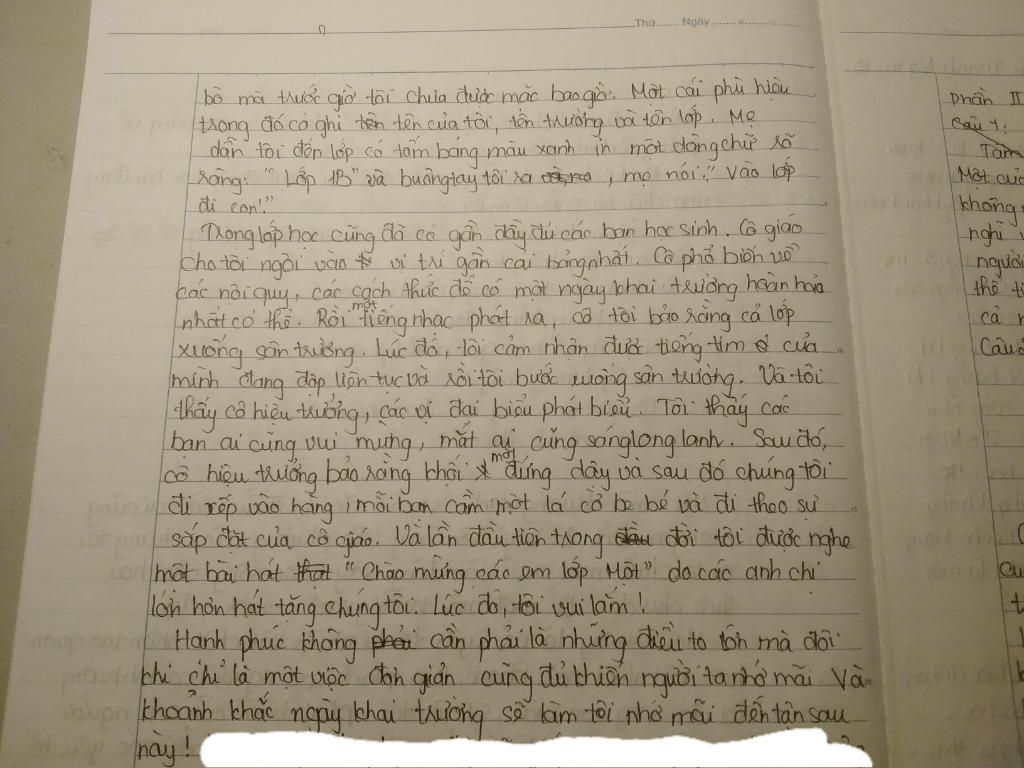 Thứ ....... Ngày ....... - ....... - .......
bồ mà trước giờ tôi chưa được mặc bao giờ. Một cái phù hiệu
trong đó có ghi tên của tôi, tên trường và tên lớp. Mẹ
dẫn tôi đến lớp có tấm bảng màu xanh in một dòng chữ rõ
ràng: "Lớp 1B" và buông tay tôi ra, mẹ nói: "Vào lớp
đi con!"
Trong lớp học cũng đã có gần đầy đủ các bạn học sinh. Cô giáo
cho tôi ngồi vào vị trí gần cái bảng nhất. Cô phổ biến về
các nội quy, các cách thức để có một ngày khai trường hoàn hảo
nhất có thể. Rồi một tiếng nhạc phát ra, cô tôi bảo rằng cả lớp
xuống sân trường. Lúc đó, tôi cảm nhận được tiếng tim của
mình đang đập liên tục và rồi tôi bước xuống sân trường. Và tôi
thấy cô hiệu trưởng, các vị đại biểu phát biểu. Tôi thấy các
bạn ai cũng vui mừng, mắt ai cũng sáng long lanh. Sau đó,
cô hiệu trưởng bảo rằng khối một đứng dậy và sau đó chúng tôi
đi xếp vào hàng, mỗi bạn cầm một lá cờ be bé và đi theo sự
sắp đặt của cô giáo. Và lần đầu tiên trong đời tôi được nghe
một bài hát "Chào mừng các em lớp Một" do các anh chị
lớn hơn hát tặng chúng tôi. Lúc đó, tôi vui lắm!
Hạnh phúc không cần phải là những điều to lớn mà đôi
khi chỉ là một việc đơn giản cũng đủ khiến người ta nhớ mãi. Và
khoảnh khắc ngày khai trường sẽ làm tôi nhớ mãi đến tận sau
này!
Phần II
Câu 1:
Một
không
nghĩ
người
thể
cả
Câu